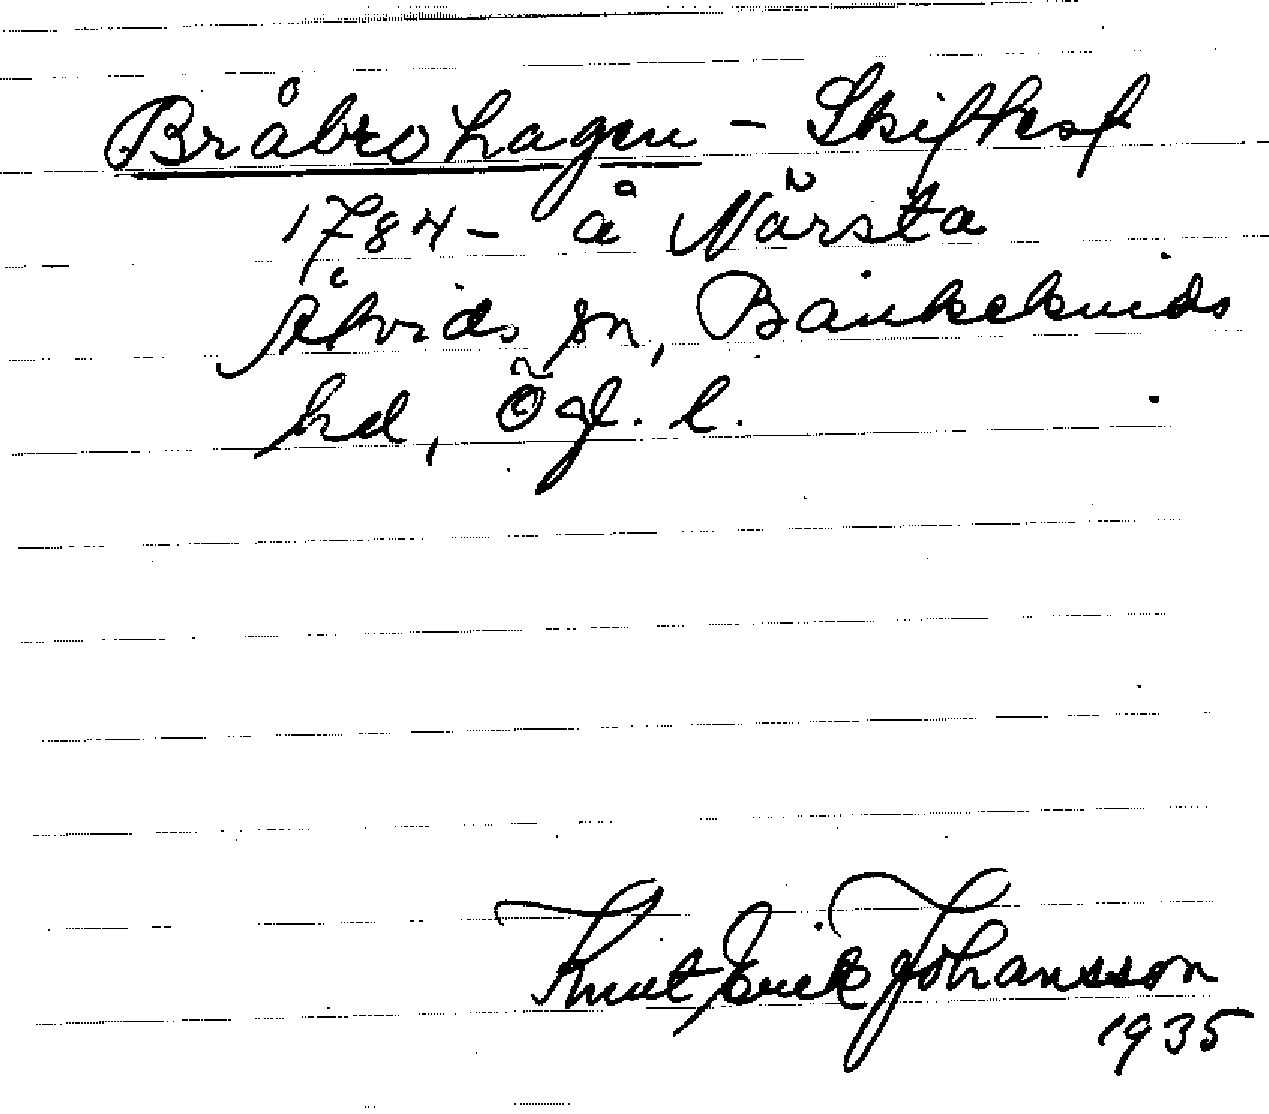 Bråbrohagen - Skifteskf
1784 - å Närsta
Åkvids sn, Bankekinds
hd, Ögl. l.
Knut Erik Johansson
1935